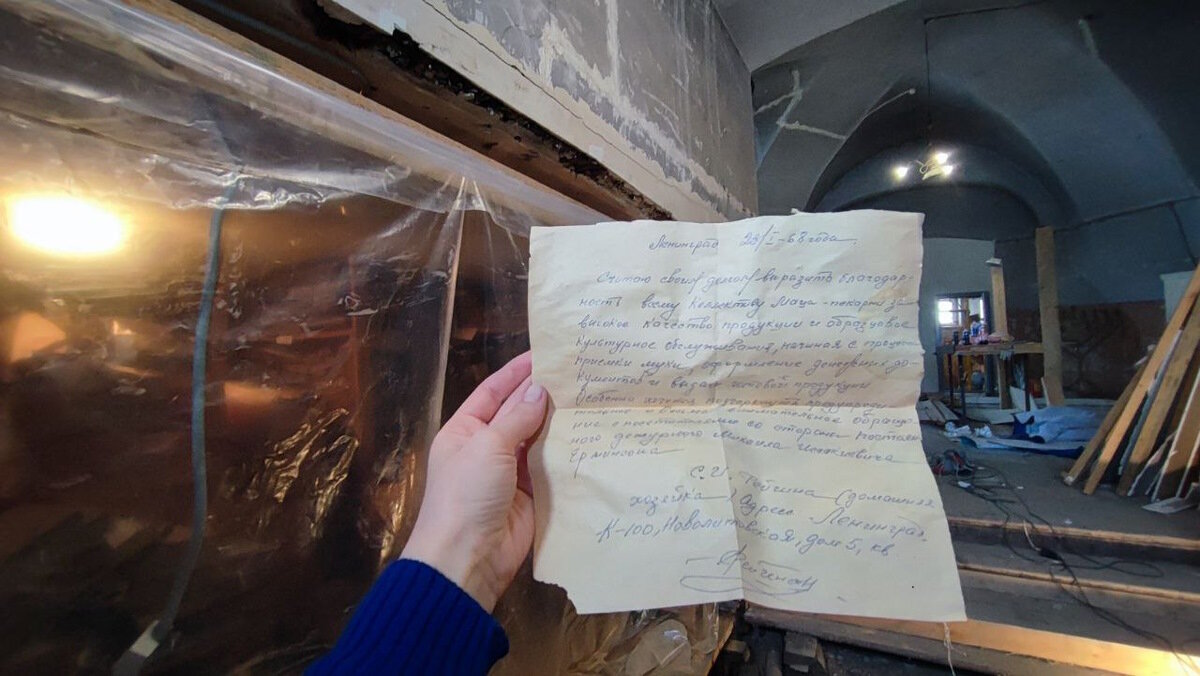 Ленинград 23/I-68 года.
Считаю своим долгом выразить благодар-
ность всему коллективу Маца-пекарни за
высокое качество продукции и образцовое
культурное обслуживание, начиная с процесса
приемки муки, оформление денежных до-
кументов и выдачи готовой продукции
Особенно хочется подчеркнуть предупреди-
тельное и весьма внимательное обраще-
ние с посетителями со стороны постоян-
ного дежурного Михаила
С. И. (домашняя
хозяйка) Адрес - Ленинград,
К-100, Новолитовская, дом 5, кв